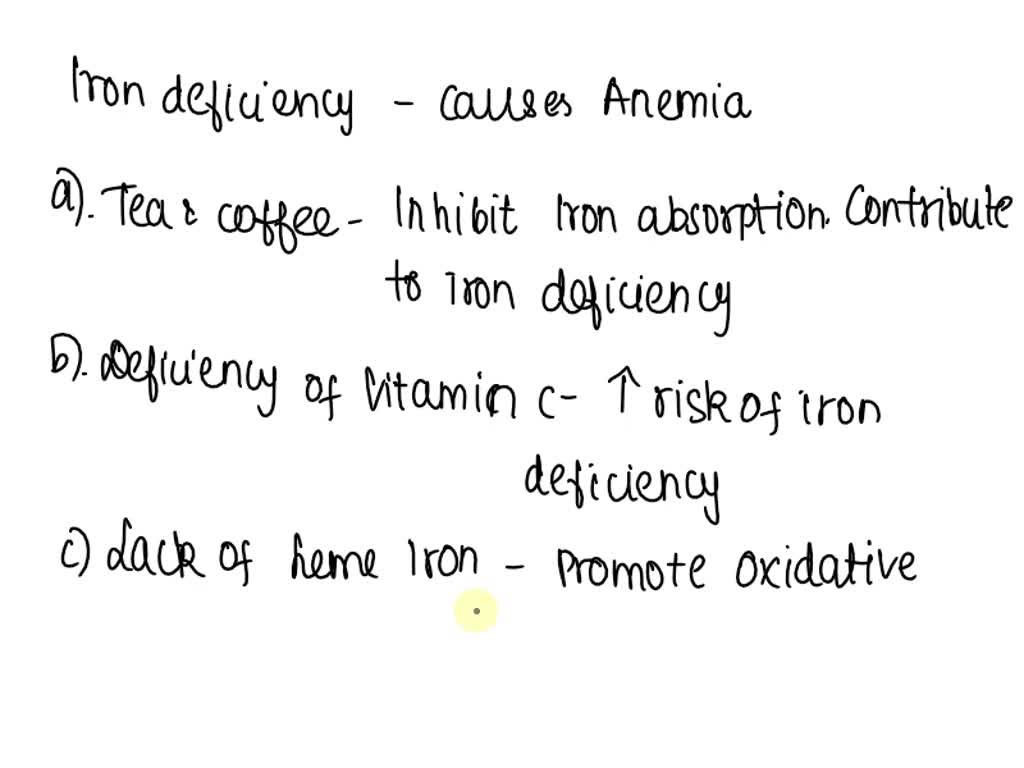 Iron deficiency - causes Anemia
a). Tea & coffee - Inhibit Iron absorption. Contribute
to iron deficiency
b). Deficiency of Vitamin C - ↑ risk of iron
deficiency
c) Lack of heme Iron - Promote oxidative